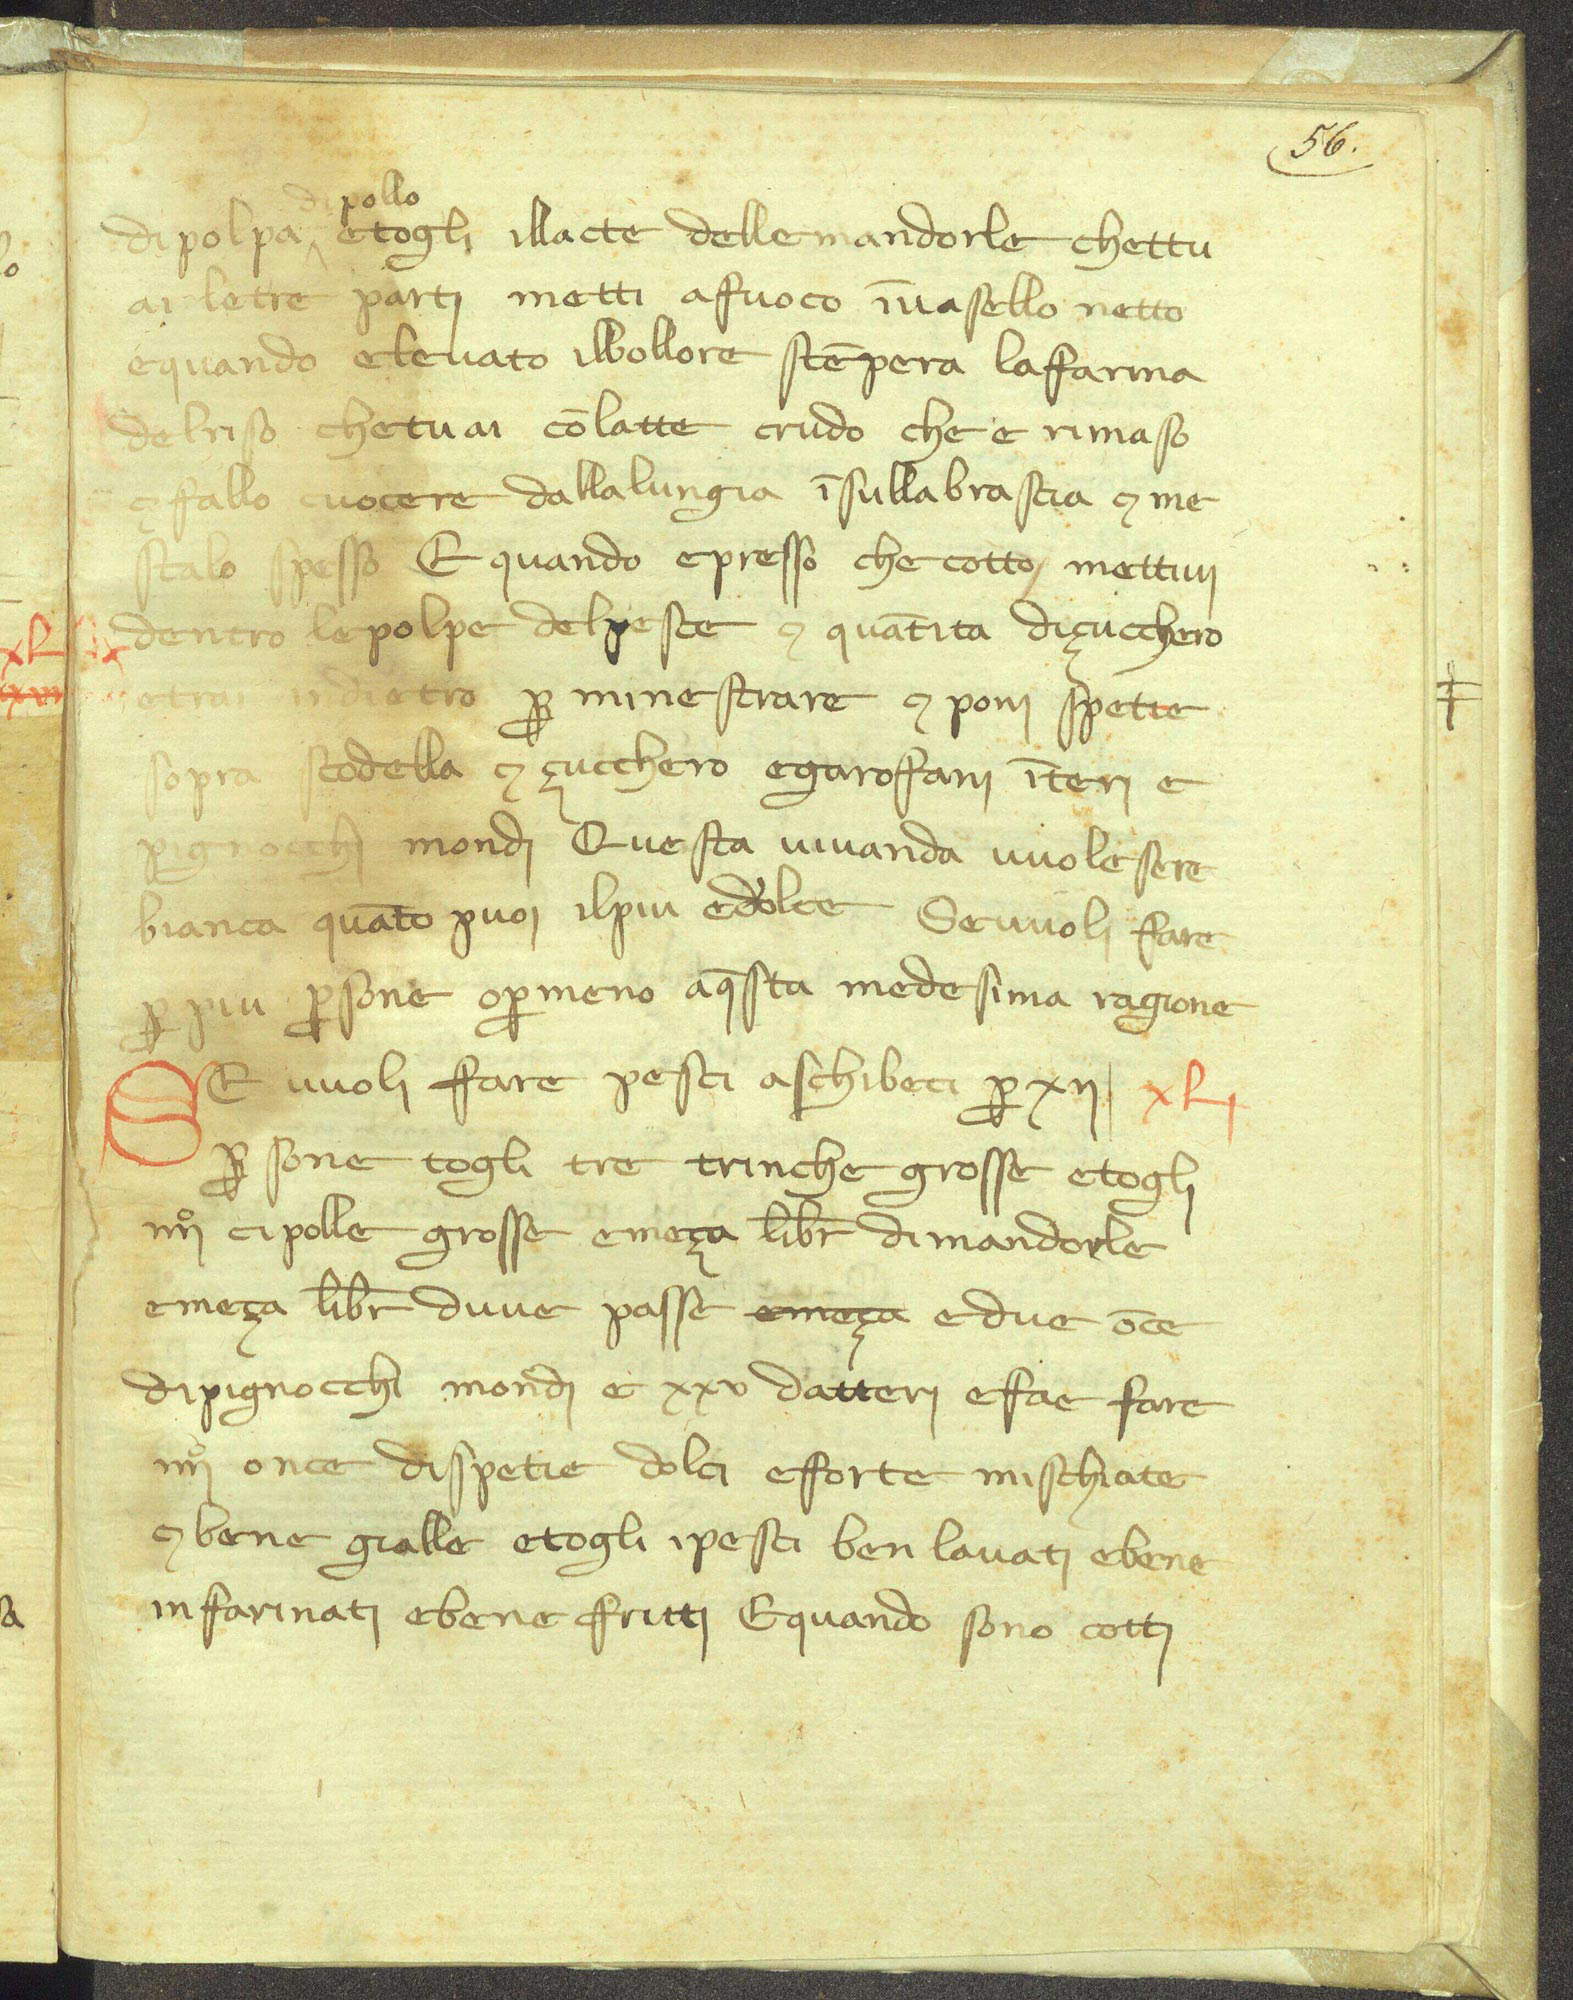 56.
di pollo
dipolpa etogli illacte dellemandorle chettu
ai letre parti metti afuoco īuasello netto
equando elevato ilbollore stēpera laffarina
delriso chetuai cōlatte crudo che e rimaso
⁊ fallo cuocere dallalungia īsullabrascia ⁊ me
scalo spesso E quando epresso checotto mettiui
dentro lepolpe delpesce ⁊ quātita diçucchero
etrai indietro ꝑ minestrare ⁊ poni spetie
sopra scodella ⁊ çucchero egaroffani īteri e
pignocchi mondi Questa uiuanda uuolesere
bianca quāto puoi ilpiu edolce Seuuoli fare
ꝑ piu ꝑsone oꝑmeno aq̄sta medesima ragione
SE uuoli fare pesci aschibeci ꝑ xij xLi
ꝑsone togli tre trinche grosse etogli
iiijº cipolle grosse emeça libr̄ dimandorle
emeça libr̄ duue passe emeça edue ōce
dipignocchi mondi e xxv datteri efae fare
iiijº once dispetie dolci efforte mischiate
⁊ bene gialle etogli ipesci ben lauati ebene
infarinati ebene fritti Equando sono cotti